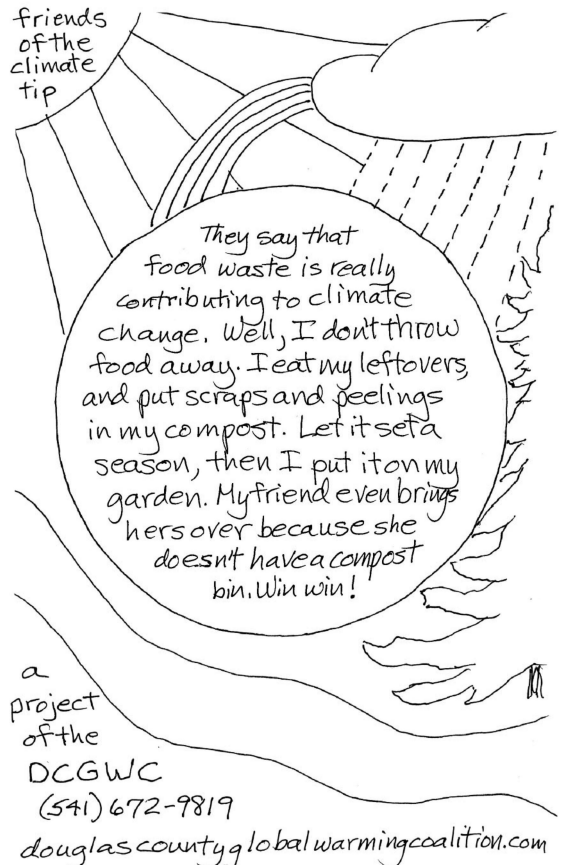 friends
of the
climate
tip
They say that
food waste is really
contributing to climate
change. Well, I don't throw
food away. I eat my leftovers,
and put scraps and peelings
in my compost. Let it set a
season, then I put it on my
garden. My friend even brings
hers over because she
doesn't have a compost
bin. Win win!
a
project
of the
DCGWC
(541) 672-9819
douglascountyglobalwarmingcoalition.com